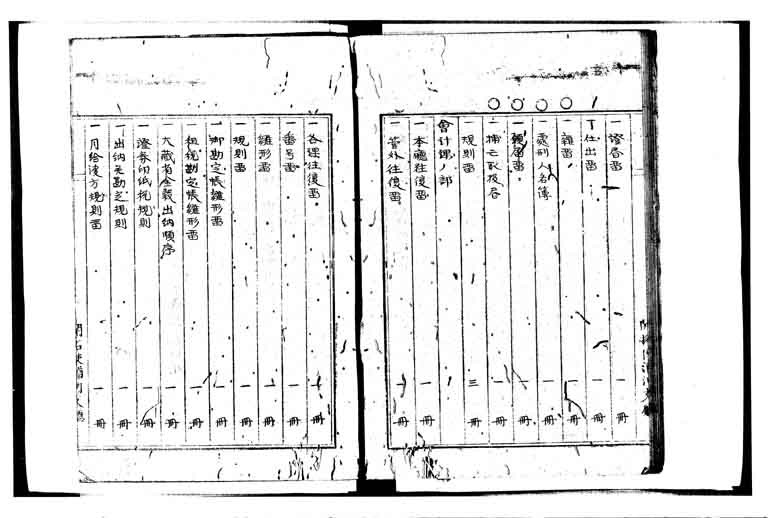 一證書畄 一冊
丁仕出畄 一冊
一雜畄 一冊
一處刑人名簿 一冊
一願届畄 一冊
一捕亡取扱 一冊
一規則畄 三冊
會計課ノ部
一本廳往復畄 一冊
一管外往復畄 一冊
一各課往復畄 一冊
一番号畄 一冊
一雛形畄 一冊
一規則畄 一冊
一御勘定帳雛形畄 一冊
一租税勘定帳雛形畄 一冊
一大蔵省金穀出納順序 一冊
一證券印紙税規則 一冊
一出納勘定規則 一冊
一月給渡方規則畄 一冊